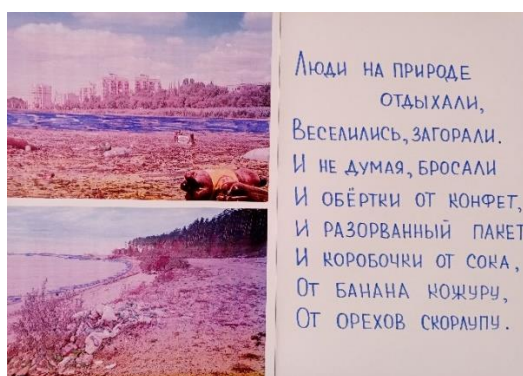 Люди на природе
отдыхали,
Веселились, загорали.
И не думая, бросали
И обёртки от конфет,
И разорванный пакет
И коробочки от сока,
От банана кожуру,
От орехов скорлупу.